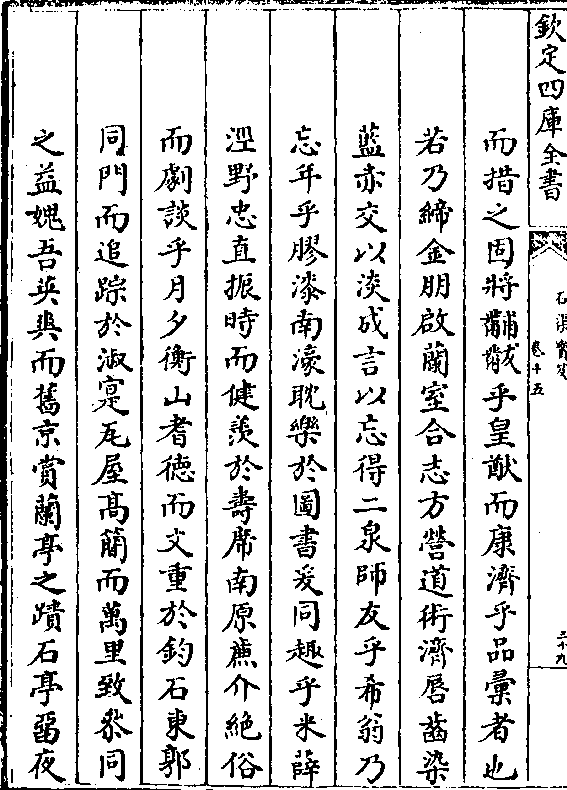 欽定四庫全書
石渠寶笈
卷十五
二十九
而措之固將黼黻乎皇猷而康濟乎品彙者也
若乃締金朋啟蘭室合志方營道術濟唇齒染
藍赤交以淡成言以忘得二泉師友乎希翁乃
忘年乎膠漆南濠耽樂於圖書爰同趣乎米薛
涇野忠直振時而健羨於壽席南原亷介絶俗
而劇談乎月夕衡山耆徳而文重於鈞石東郭
同門而追踪於淑寔瓦屋髙簡而萬里致祭同
之益媿吾英與而舊京賞蘭亭之蹟石亭留夜